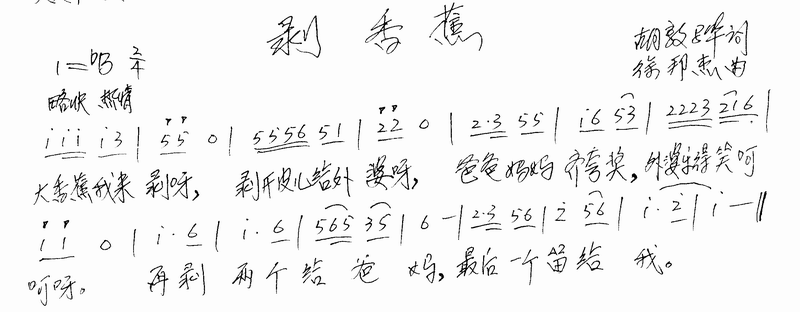 剥香蕉
胡敦骅词
1=bB 2/4
徐邦杰曲
略快 热情
i i i i 3 | 5 5 0 | 5 5 5 6 5 1 | 2 2 0 | 2·3 5 5 | i 6 5 3 | 2 2 2 3 2 1 6 |
大香蕉我来剥呀，剥开皮儿给外婆呀，爸爸妈妈齐夸奖，外婆乐得笑呵
i i 0 | i· 6 | i· 6 | 5 6 5 3 5 | 6 — | 2·3 5 6 | 2 5 6 | i· 2 | i — ‖
呵呀。再剥两个给爸妈，最后一个留给我。